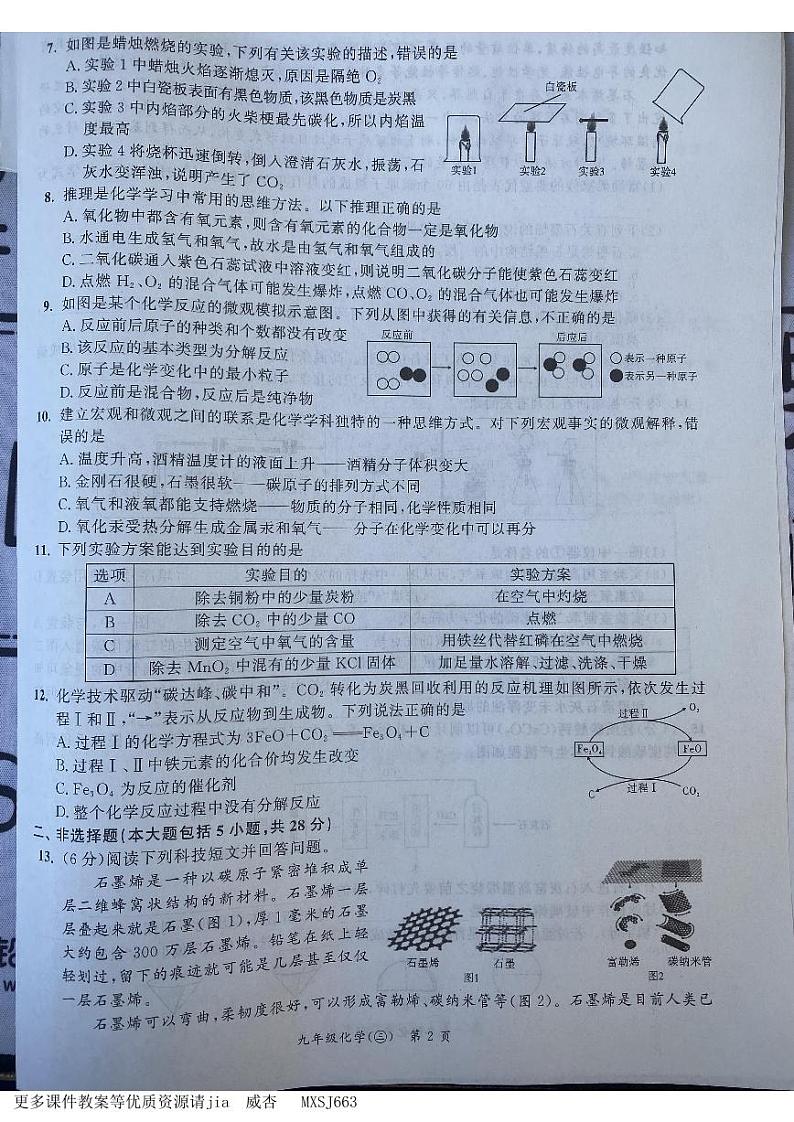 7. 如图是蜡烛燃烧的实验,下列有关该实验的描述,错误的是
A. 实验1中蜡烛火焰逐渐熄灭,原因是隔绝O₂
B. 实验2中白瓷板表面有黑色物质,该黑色物质是炭黑
C. 实验3中内焰部分的火柴梗最先碳化,所以内焰温
度最高
D. 实验4将烧杯迅速倒转,倒入澄清石灰水,振荡,石
灰水变浑浊,说明产生了CO₂
白瓷板
实验1 实验2 实验3 实验4
8. 推理是化学学习中常用的思维方法。以下推理正确的是
A. 氧化物中都含有氧元素,则含有氧元素的化合物一定是氧化物
B. 水通电生成氢气和氧气,故水是由氢气和氧气组成的
C. 二氧化碳通入紫色石蕊试液中溶液变红,则说明二氧化碳分子能使紫色石蕊变红
D. 点燃 H₂、O₂ 的混合气体可能发生爆炸,点燃 CO、O₂ 的混合气体也可能发生爆炸
9. 如图是某个化学反应的微观模拟示意图。下列从图中获得的有关信息,不正确的是
A. 反应前后原子的种类和个数都没有改变
B. 该反应的基本类型为分解反应
C. 原子是化学变化中的最小粒子
D. 反应前是混合物,反应后是纯净物
反应前 后应后
表示一种原子
表示另一种原子
10. 建立宏观和微观之间的联系是化学学科独特的一种思维方式。对下列宏观事实的微观解释,错
误的是
A. 温度升高,酒精温度计的液面上升——酒精分子体积变大
B. 金刚石很硬,石墨很软——碳原子的排列方式不同
C. 氧气和液氧都能支持燃烧——物质的分子相同,化学性质相同
D. 氧化汞受热分解生成金属汞和氧气——分子在化学变化中可以再分
11. 下列实验方案能达到实验目的的是
选项 实验目的 实验方案
A 除去铜粉中的少量炭粉 在空气中灼烧
B 除去 CO₂ 中的少量 CO 点燃
C 测定空气中氧气的含量 用铁丝代替红磷在空气中燃烧
D 除去 MnO₂ 中混有的少量 KCl 固体 加足量水溶解、过滤、洗涤、干燥
12. 化学技术驱动“碳达峰、碳中和”。CO₂ 转化为炭黑回收利用的反应机理如图所示,依次发生过
程Ⅰ和Ⅱ,“→”表示从反应物到生成物。下列说法正确的是
A. 过程Ⅰ的化学方程式为 3FeO+CO₂══Fe₃O₄+C
B. 过程Ⅰ、Ⅱ中铁元素的化合价均发生改变
C. Fe₃O₄ 为反应的催化剂
D. 整个化学反应过程中没有分解反应
过程Ⅱ O₂
Fe₃O₄ FeO
C 过程Ⅰ CO₂
二、非选择题(本大题包括5小题,共28分)
13. (6分)阅读下列科技短文并回答问题。
石墨烯是一种以碳原子紧密堆积成单
层二维蜂窝状结构的新材料。石墨烯一层
层叠起来就是石墨(图1),厚1毫米的石墨
大约包含300万层石墨烯。铅笔在纸上轻
轻划过,留下的痕迹就可能是几层甚至仅仅
一层石墨烯。
石墨烯 石墨
图1
富勒烯 碳纳米管
图2
石墨烯可以弯曲,柔韧度很好,可以形成富勒烯、碳纳米管等(图2)。石墨烯是目前人类已
九年级化学(三) 第2页
更多课件教案等优质资源请jia 威杏 MXSJ663